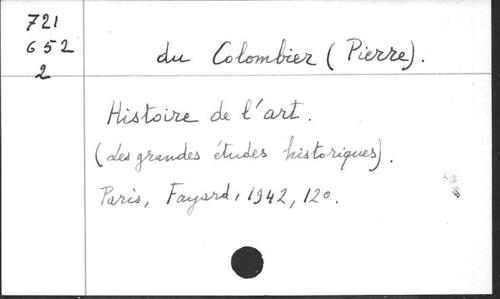 721
652
2
du Colombier (Pierre).
Histoire de l'art.
(Les grandes études historiques).
Paris, Fayard, 1942, 120.